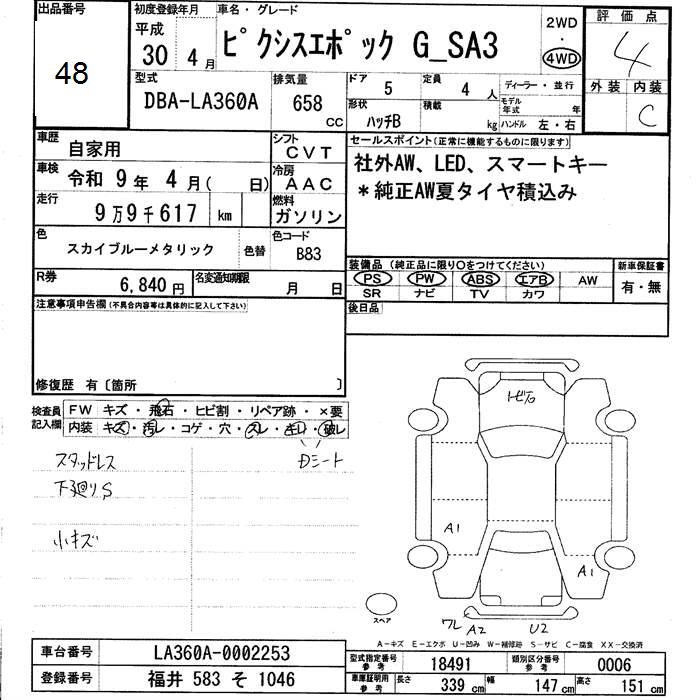 出品番号
48
初度登録年月
平成
30年 4月
車名・グレード
ピクシスエポック G_SA3
2WD
・
4WD
評価点
4
外装 内装
C
型式
DBA-LA360A
排気量
658
CC
ドア
5
定員
4人
形状
ハッチB
積載
kg
ディーラー・並行
モデル年式
年
ハンドル 左・右
車歴
自家用
シフト
CVT
車検
令和 9年 4月( 日)
冷房
AAC
走行
9万9千617 km
燃料
ガソリン
色
スカイブルーメタリック
色替
色コード
B83
R券
6,840円
名変通知期限
月 日
セールスポイント(正常に機能するものに限ります)
社外AW、LED、スマートキー
*純正AW夏タイヤ積込み
装備品 (純正品に限り○をつけてください)
PS PW ABS エアB AW
SR ナビ TV カワ
新車保証書
有・無
後日品
注意事項申告欄(不具合内容等は具体的に記入して下さい)
修復歴 有〔箇所 〕
検査員記入欄
FW キズ・飛石・ヒビ割・リペア跡・×要
内装 キズ・汚レ・コゲ・穴・スレ・キレ・破レ
スタッドレス
Dシート
下廻りS
小キズ
トビ石
A1
A1
ワレ A2 U2
スペア
A-キズ E-エクボ U-凹み W-補修跡 S-サビ C-腐食 XX-交換済
車台番号
LA360A-0002253
登録番号
福井 583 そ 1046
型式指定番号
参考
18491
類別区分番号
参考
0006
車庫証明用
参考
長さ
339 cm
幅
147 cm
高さ
151 cm